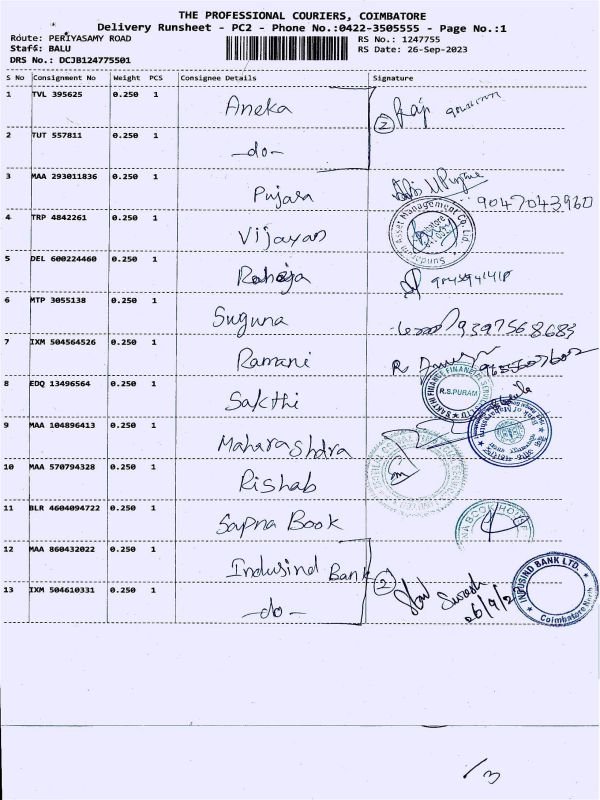 THE PROFESSIONAL COURIERS, COIMBATORE
Delivery Runsheet - PC2 - Phone No.:0422-3505555 - Page No.:1
Route: PERIYASAMY ROAD
RS No.: 1247755
Staff: BALU
RS Date: 26-Sep-2023
DRS No.: DCJB124775501
S No Consignment No Weight PCS Consignee Details Signature
1 TVL 395625 0.250 1 Aneka 2 Raj
2 TUT 557811 0.250 1 -do-
3 MAA 293011836 0.250 1 Pujara 9047043960
4 TRP 4842261 0.250 1 Vijayan Sundaram Asset Management Co. Ltd.
5 DEL 600224460 0.250 1 Raheja
6 MTP 3055138 0.250 1 Suguna 9397568689
7 IXM 504564526 0.250 1 Ramani R
8 EDQ 13496564 0.250 1 Sakthi SAKTHI FINANCIAL SERVICES R.S.PURAM
9 MAA 104896413 0.250 1 Maharashdra Bank of Maharashtra
10 MAA 570794328 0.250 1 Rishab
11 BLR 4604094722 0.250 1 Sapna Book BOOK HOUSE
12 MAA 860432022 0.250 1 Indusind Bank 2 INDUSIND BANK LTD. Coimbatore North
13 IXM 504610331 0.250 1 -do- Suresh 26/9/2
/3